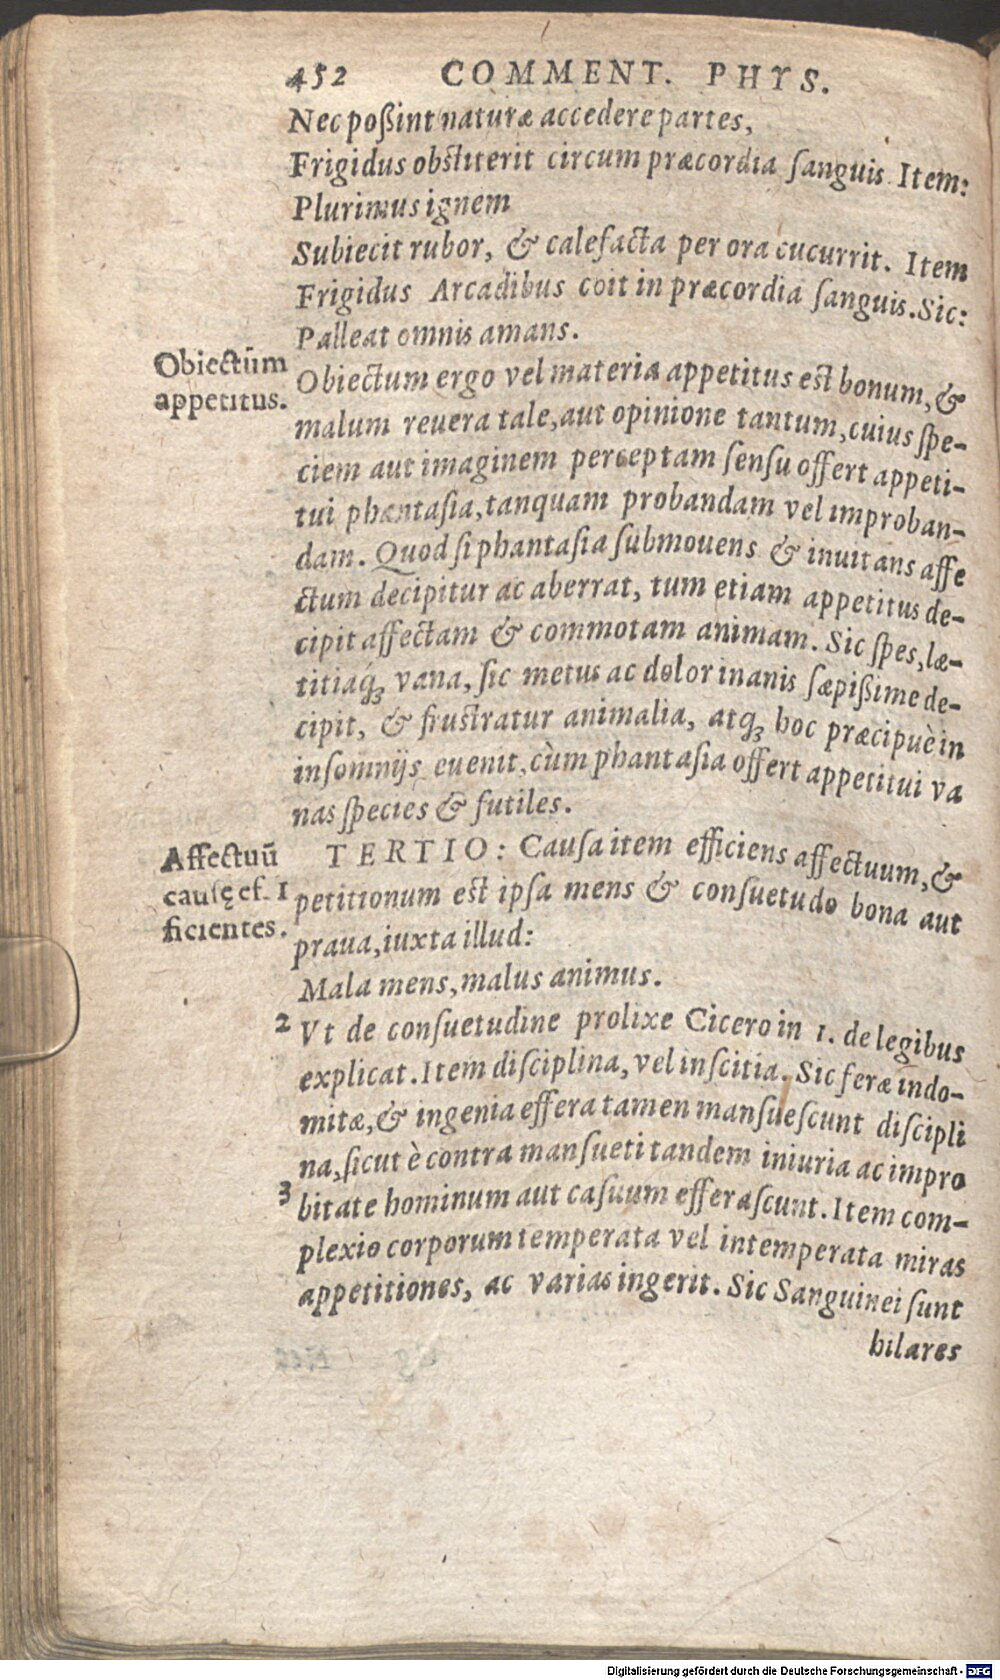 452 COMMENT. PHYS.
Nec poßint naturæ accedere partes,
Frigidus obstiterit circum præcordia ſanguis. Item:
Plurimus ignem
Subiecit rubor, & calefacta per ora cucurrit. Item
Frigidus Arcadibus coit in præcordia ſanguis. Sic:
Palleat omnis amans.
Obiectũm
appetitus.
Obiectum ergo vel materia appetitus est bonum, &
malum reuera tale, aut opinione tantum, cuius ſpe-
ciem aut imaginem perceptam ſenſu offert appeti-
tui phantaſia, tanquam probandam vel improban-
dam. Quod ſi phantaſia ſubmouens & inuitans affe
ctum decipitur ac aberrat, tum etiam appetitus de-
cipit affectam & commotam animam. Sic ſpes, læ-
titiaq́; vana, ſic metus ac dolor inanis ſæpißime de-
cipit, & frustratur animalia, atq; hoc præcipuè in
inſomnijs euenit, cùm phantaſia offert appetitui va
nas ſpecies & futiles.
Affectuũ
cauſę ef-
ficientes.
TERTIO: Cauſa item efficiens affectuum, &
1 petitionum est ipſa mens & conſuetudo bona aut
praua, iuxta illud:
Mala mens, malus animus.
2 Vt de conſuetudine prolixe Cicero in 1. de legibus
explicat. Item diſciplina, vel inſcitia. Sic feræ indo-
mitæ, & ingenia effera tamen manſueſcunt diſcipli
na, ſicut è contra manſueti tandem iniuria ac impro
3 bitate hominum aut caſuum efferaſcunt. Item com-
plexio corporum temperata vel intemperata miras
appetitiones, ac varias ingerit. Sic Sanguinei ſunt
hilares
Digitalisierung gefördert durch die Deutsche Forschungsgemeinschaft - DFG